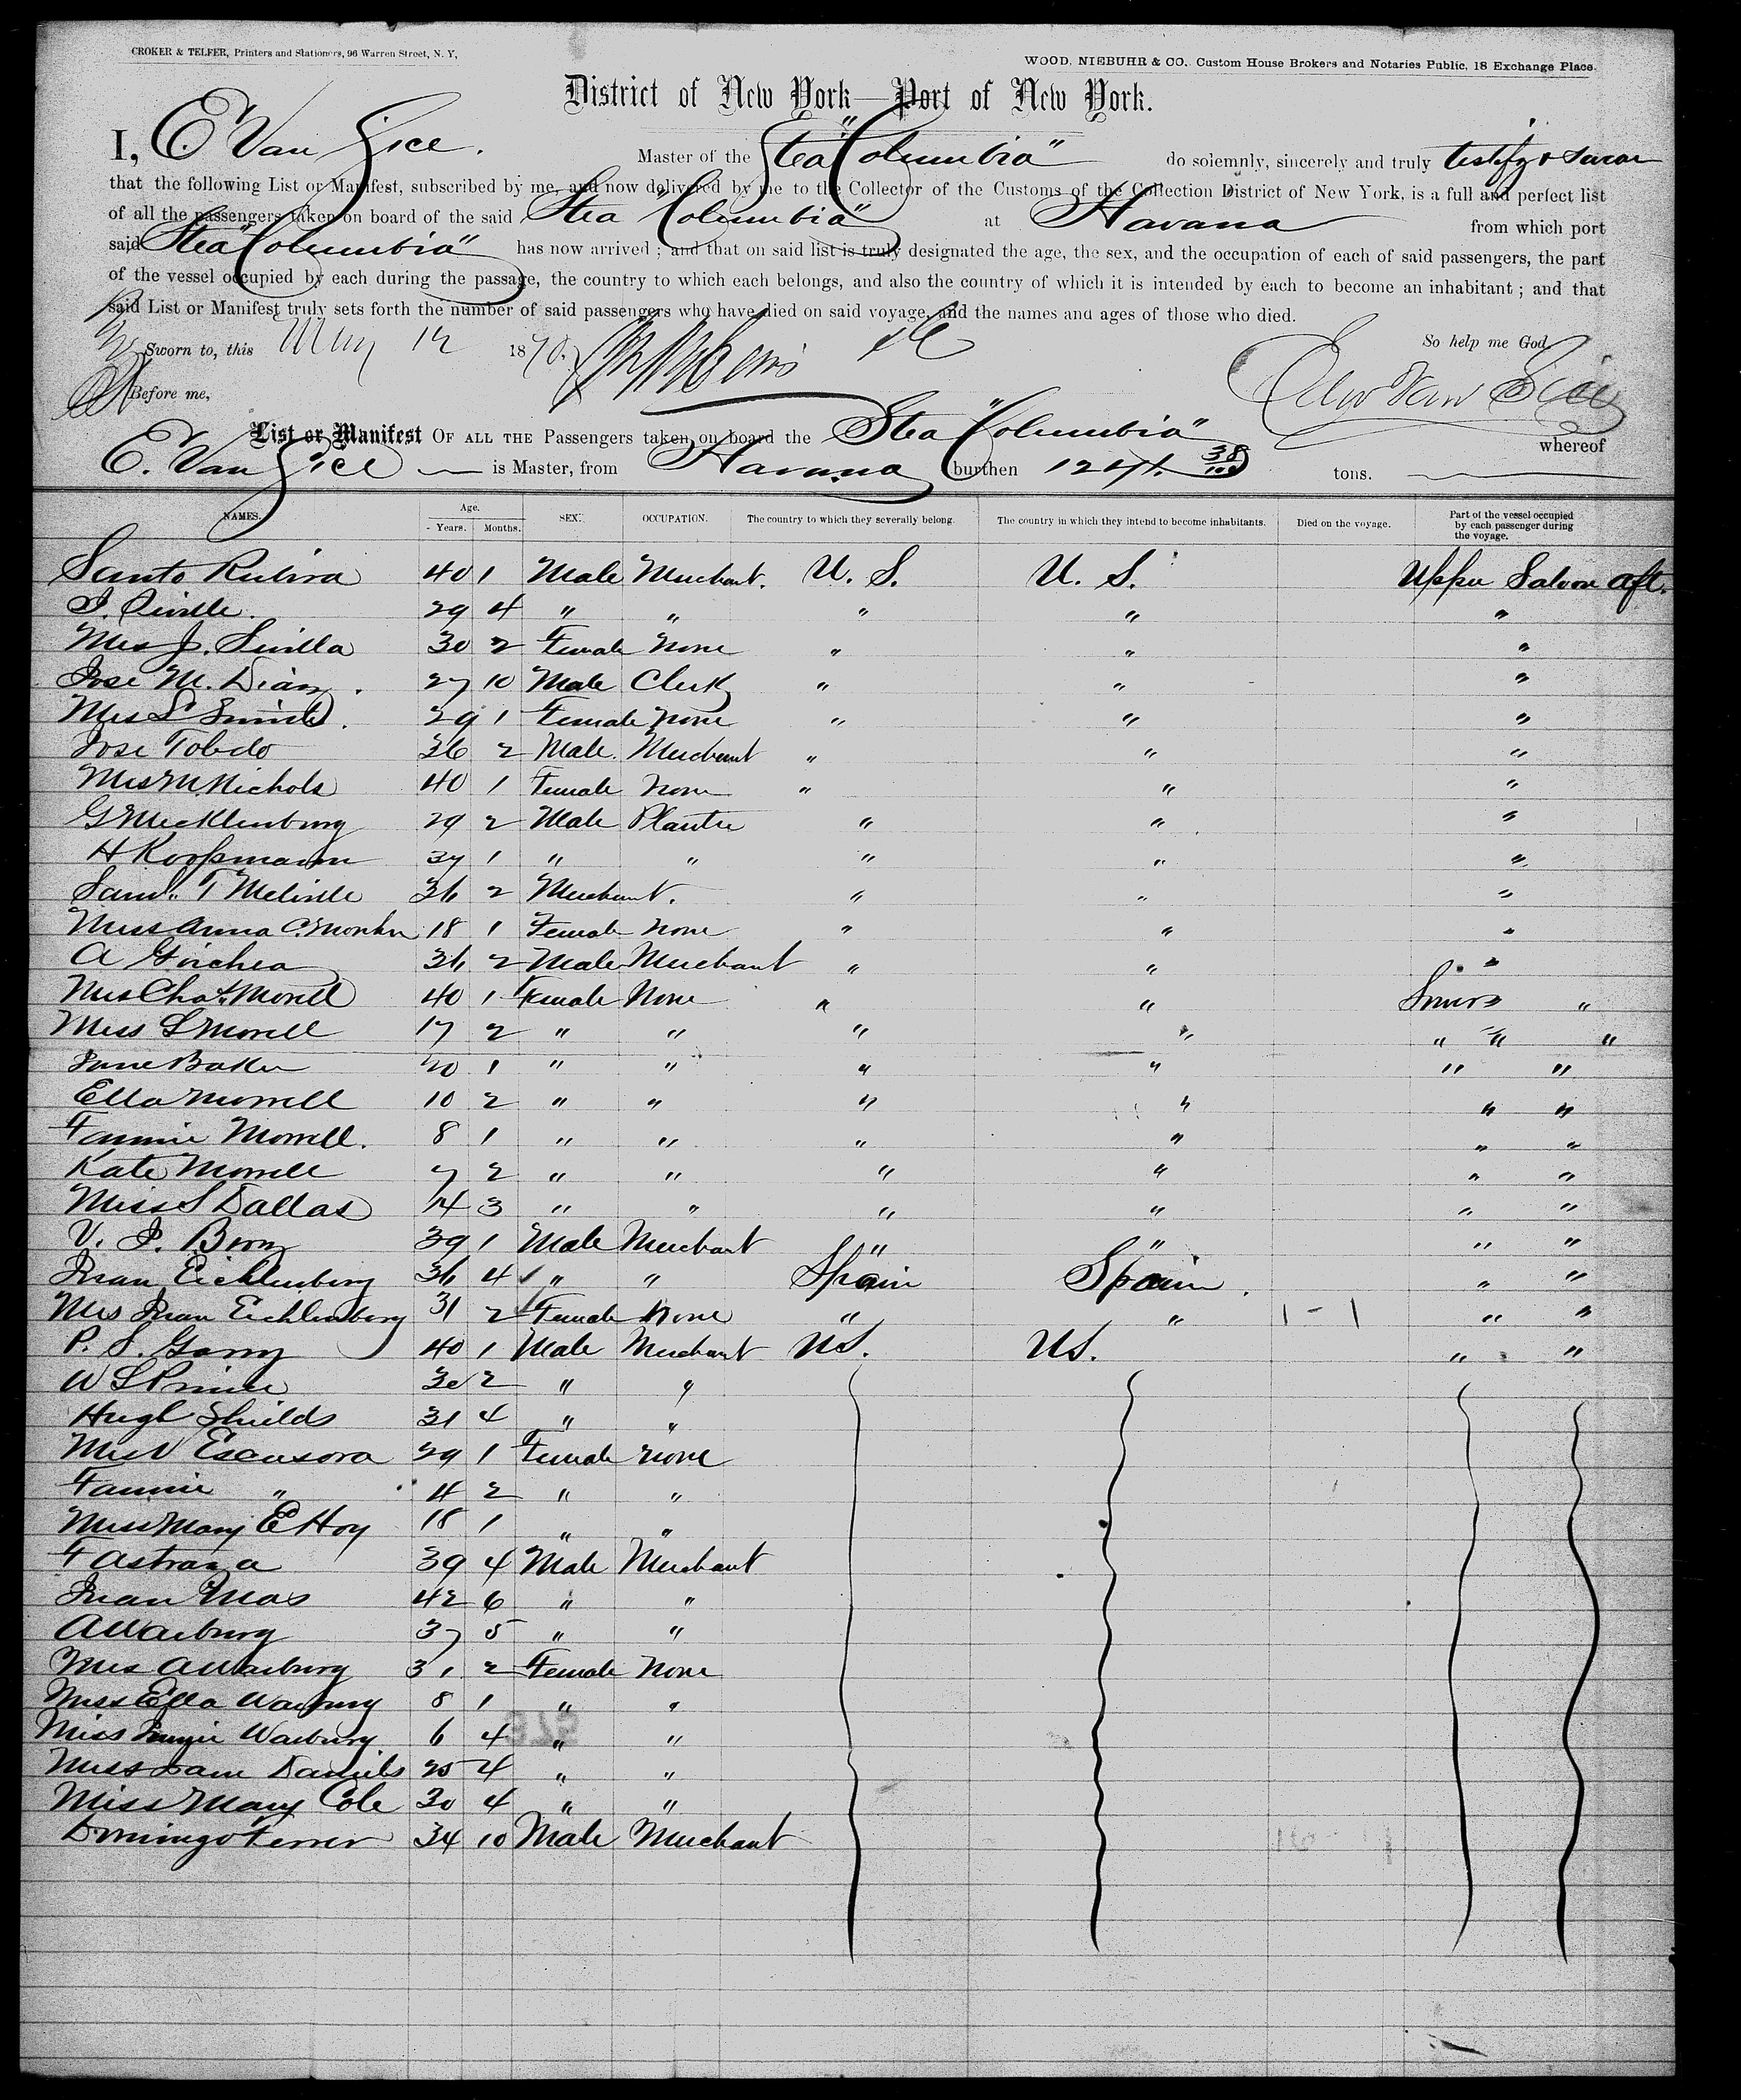 CROKER & TELFER, Printers and Stationers, 96 Warren Street, N. Y,
WOOD, NIEBUHR & CO., Custom House Brokers and Notaries Public, 18 Exchange Place.
District of New York—Port of New York.
I, E Van Sice. Master of the Stea "Columbia" do solemnly, sincerely and truly testify & swear
that the following List or Manifest, subscribed by me, and now delivered by me to the Collector of the Customs of the Collection District of New York, is a full and perfect list
of all the passengers taken on board of the said Stea "Columbia" at Havana from which port
said Stea "Columbia" has now arrived ; and that on said list is truly designated the age, the sex, and the occupation of each of said passengers, the part
of the vessel occupied by each during the passage, the country to which each belongs, and also the country of which it is intended by each to become an inhabitant ; and that
said List or Manifest truly sets forth the number of said passengers who have died on said voyage, and the names and ages of those who died.
Sworn to, this May 12 1870. So help me God
Before me, Van Sice
List or Manifest OF ALL THE Passengers taken on board the Stea "Columbia" whereof
E. Van Sice is Master, from Havana burthen 1247. 38/100 tons.
NAMES. Age. Years. Months. SEX. OCCUPATION. The country to which they severally belong. The country in which they intend to become inhabitants. Died on the voyage. Part of the vessel occupied by each passenger during the voyage.
Santo Rubira 40 1 Male Merchant. U. S. U. S. Upper Saloon Aft.
29 4 " " " " "
Mrs J. Sevilla 30 2 Female None " " "
Jose M. Diaz. 27 10 Male Clerk " " "
Mrs 29 1 Female None " " "
Jose Toledo 36 2 Male. Merchant " " "
Mrs M. Nichols 40 1 Female None " " "
G Mecklenburg 29 2 Male Planter " " "
H Koopmann 37 1 " " " " "
Saml. T Melville 36 2 Merchant. " " "
Miss Anna C. 18 1 Female None " " "
A 36 2 Male Merchant " " "
Mrs Chas. Morell 40 1 Female None " "
Miss L Morell 17 2 " " " " " " "
Jane Baker 20 1 " " " " " "
Ella Morrell 10 2 " " " " " "
Fannie Morrell. 8 1 " " " " " "
Kate Morrell 7 2 " " " " " "
Miss S Dallas 14 3 " " " " " "
V. J. 39 1 Male Merchant " " " "
Juan Eichlenberg 36 4 " " Spain Spain. " "
Mrs Juan Eichlenberg 31 2 Female None " " 1 - 1 " "
P. S. 40 1 Male Merchant US. US. " "
W S Prince 30 2 " "
Hugh Shields 31 4 " "
29 1 Female None
Fannie " 4 2 " "
Miss Mary E Hoy 18 1 " "
F 39 4 Male Merchant
Juan Mas 42 6 " "
A Warburg 37 5 " "
Mrs A Warburg 31. 2 Female None
Miss Ella Warburg 8 1 " "
Miss Warburg 6 4 " "
Miss Daniels 25 4 " "
Miss Mary Cole 30 4 " "
Domingo Ferrer 34 10 Male Merchant